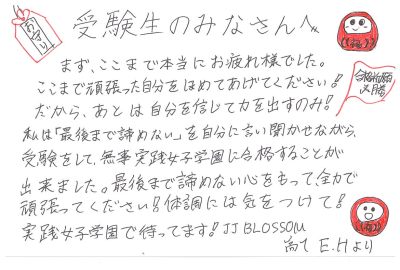 お守り
受験生のみなさんへ
まず、ここまで本当にお疲れ様でした。
ここまで頑張った自分をほめてあげてください!
だから、あとは自分を信じて力を出すのみ!
私は「最後まで諦めない」を自分に言い聞かせながら、
受験をして、無事実践女子学園に合格することが
出来ました。最後まで諦めない心をもって、全力で
頑張ってください!体調には気をつけて!
実践女子学園で待ってます!JJ BLOSSOM
合格祈願
必勝
高1 E.Hより